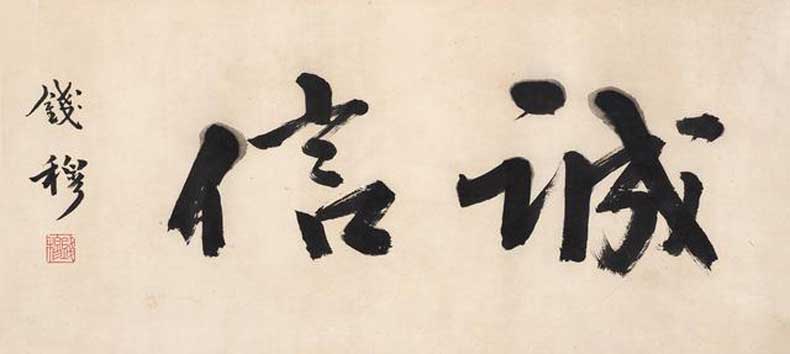 誠信
錢穆